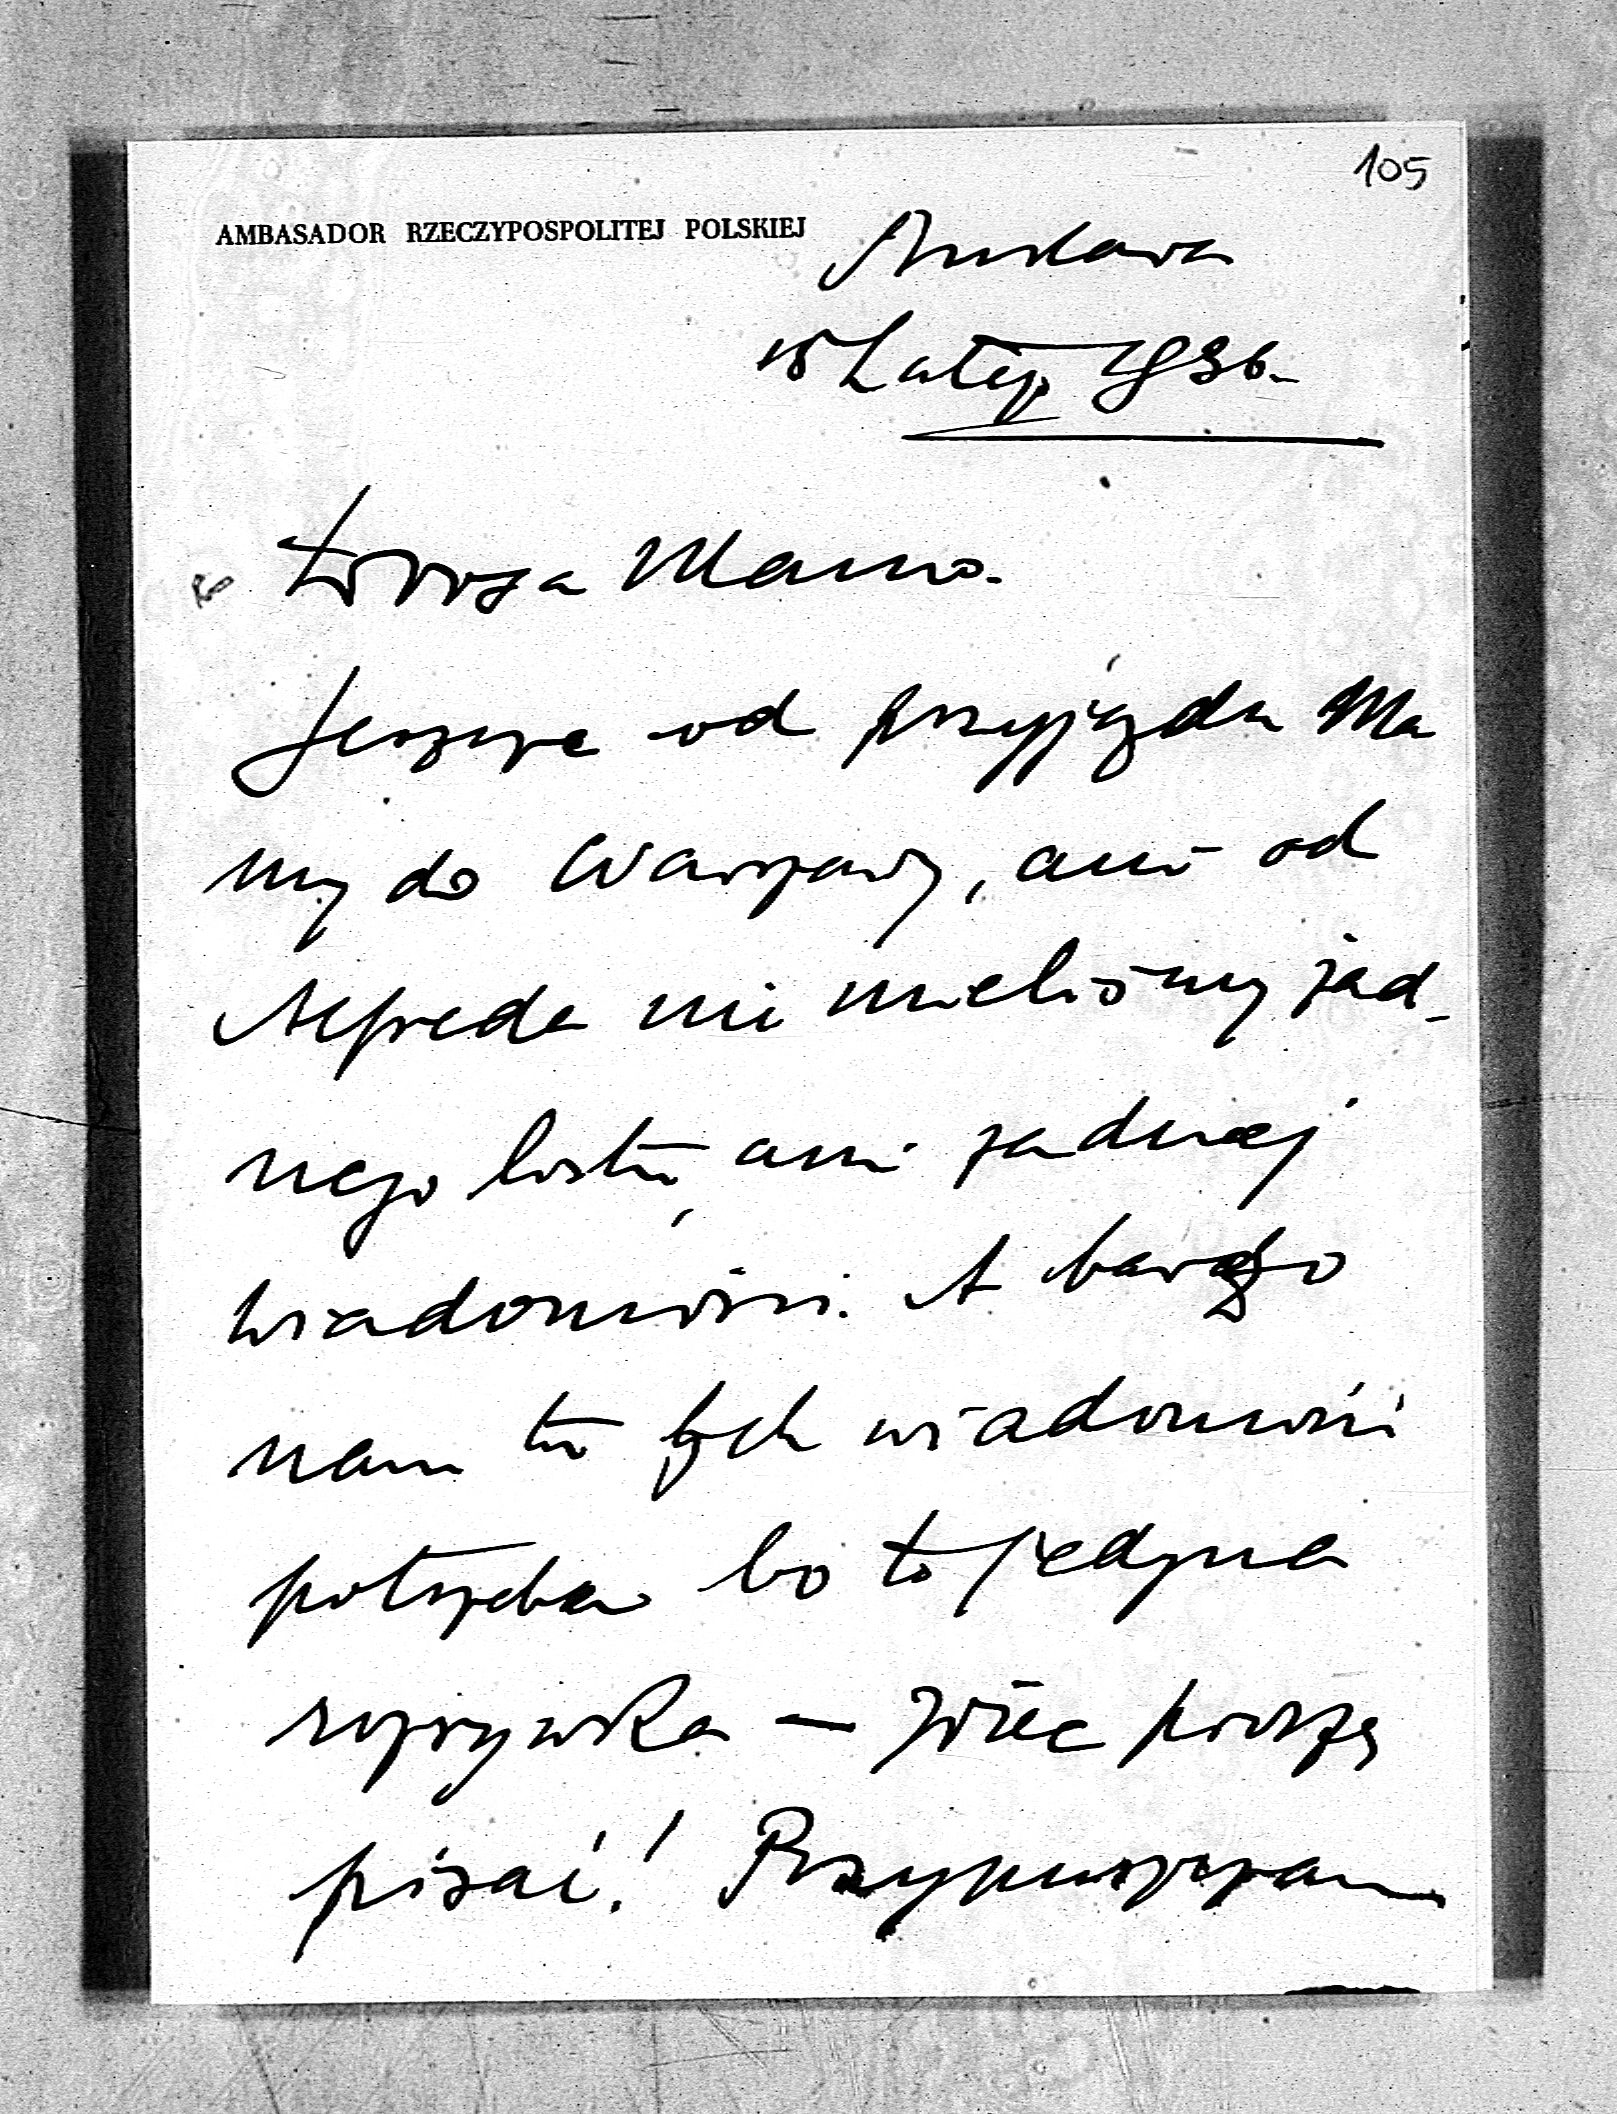 105
AMBASADOR RZECZYPOSPOLITEJ POLSKIEJ
Ankara
15 Lutego 1936.
Droga Mamo.
Jeszcze od przyjazdu Ma
my do Warszawy, ani od
Alfreda nie mieliśmy żad-
nego listu, ani żadnej
wiadomości. A bardzo
nam tu tych wiadomości
potrzeba bo to jedyna
rozrywka — Więc proszę
pisać! Przypuszczam